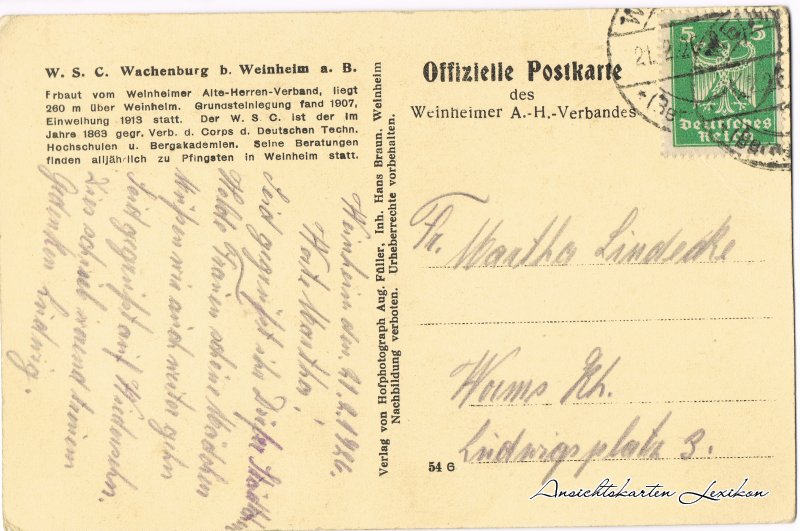 W. S. C. Wachenburg b. Weinheim a. B.
Erbaut vom Weinheimer Alte-Herren-Verband, liegt
260 m über Weinheim. Grundsteinlegung fand 1907,
Einweihung 1913 statt. Der W. S. C. ist der im
Jahre 1863 gegr. Verb. d. Corps d. Deutschen Techn.
Hochschulen u. Bergakademien. Seine Beratungen
finden alljährlich zu Pfingsten in Weinheim statt.
Weinheim den 21.2.1926.
Werte Martha!
Seid gegrüßt ihr
Holde Frauen schöne Mädchen
Müssen wir auch weiter gehn
Seid gegrüßt auf Wiedersehn.
Gedenken Ludwig.
Verlag von Hofphotograph Aug. Füller, Inh. Hans Braun. Weinheim
Nachbildung verboten. Urheberrechte vorbehalten.
Offizielle Postkarte
des
Weinheimer A.-H.-Verbandes
5 5
Deutsches
Reich
21.2.
Fr. Martha Lindecke
Worms Rh.
Ludwigsplatz 3.
54 6
Ansichtskarten Lexikon